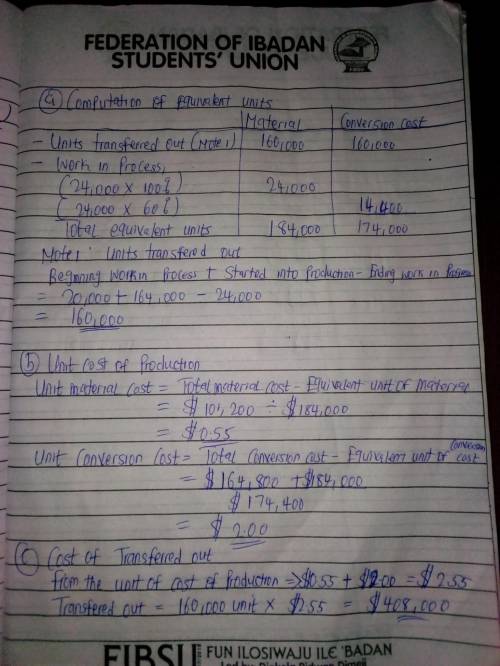 FEDERATION OF IBADAN
STUDENTS' UNION
(a) Computation of equivalent units
Material Conversion cost
- Units transferred out (Note 1) 160,000 160,000
- Work in Process,
(24,000 x 100%) 24,000
(24,000 x 60%) 14,400
Total equivalent units 184,000 174,000
Note 1: Units transfered out
Beginning work in Process + Started into Production - Ending work in Process
= 20,000 + 164,000 - 24,000
= 160,000
(b) Unit cost of Production
Unit material cost = Total material cost - Equivalent unit of material
= $101,200 ÷ $184,000
= $0.55
Unit Conversion Cost = Total Conversion cost - Equivalent unit of conversion cost
= $164,800 + $184,000
$174,400
= $2.00
(c) Cost of Transferred out
from the unit of cost of Production => $0.55 + $2.00 = $2.55
Transfered out = 160,000 unit x $2.55 = $408,000
FIBSU FUN ILOSIWAJU ILE 'BADAN